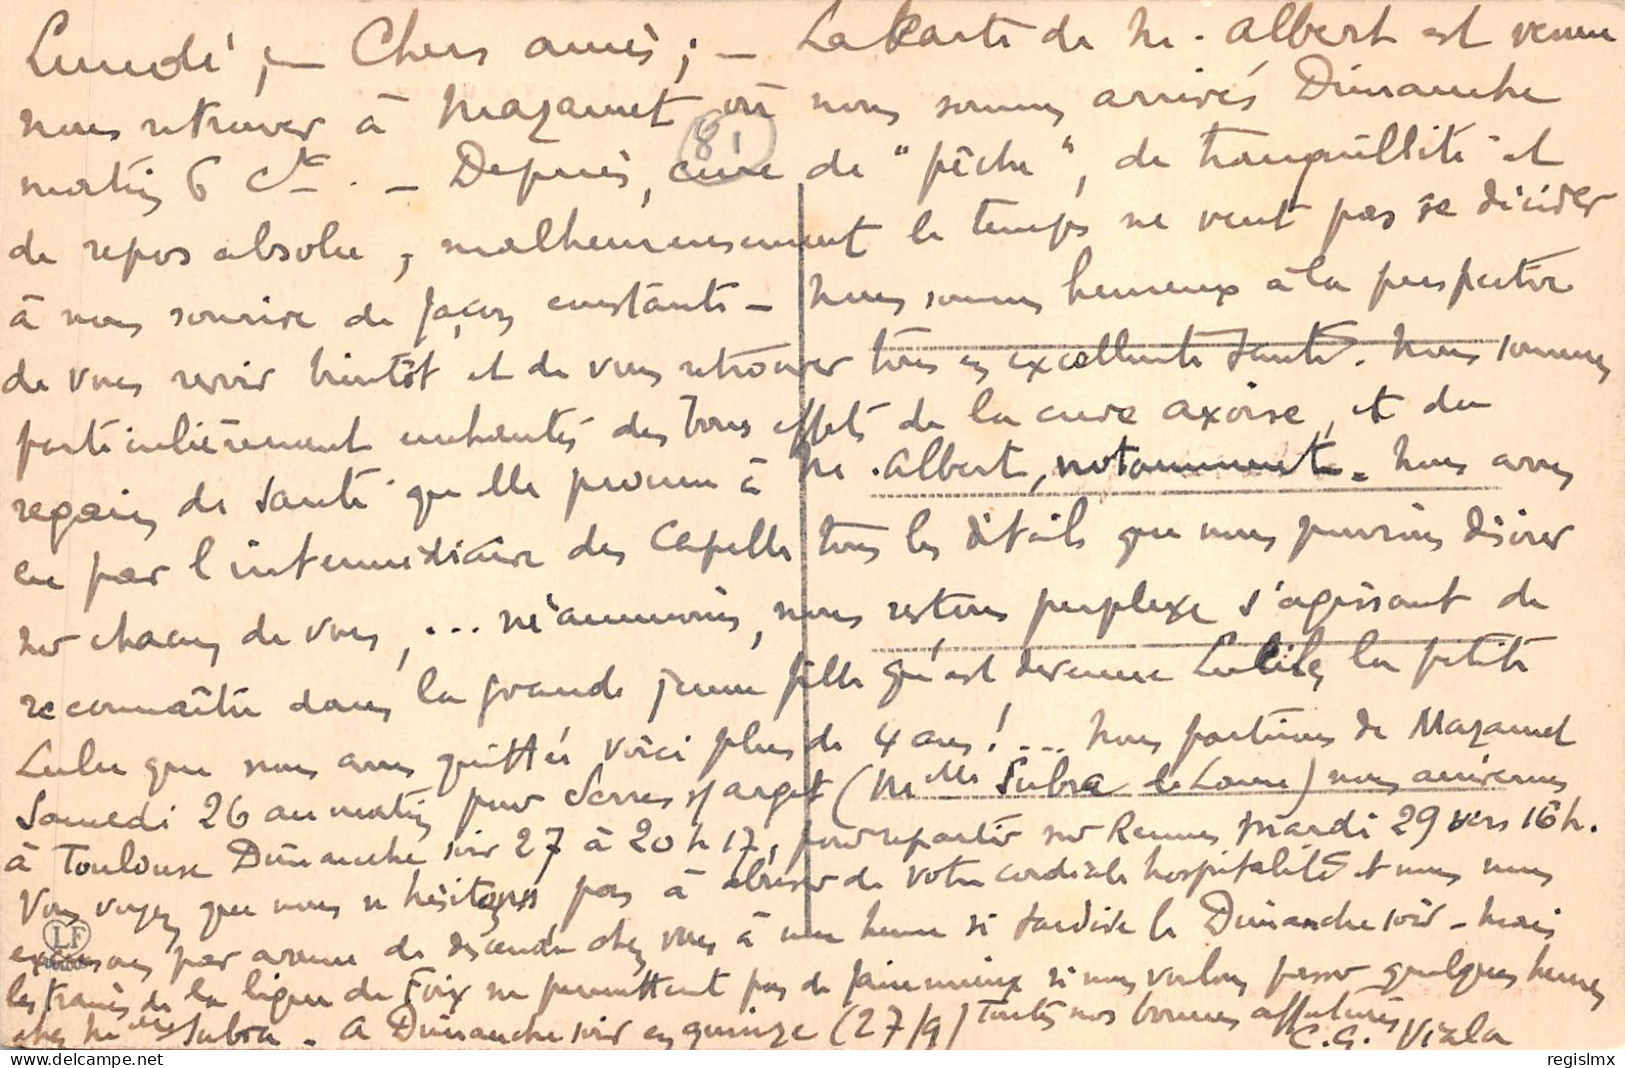 Lundi ; — Chers amis ; — La Carte de M. Albert est venue
nous retrouver à Mazamet où nous sommes arrivés Dimanche
81
matin 6 Ct. — Depuis, cure de "pêche", de tranquillité et
de repos absolu ; malheureusement le temps ne veut pas se décider
à nous sourire de façon constante — Nous sommes heureux à la perspective
de vous revoir bientôt et de vous retrouver tous en excellente santé. Nous sommes
particulièrement enchantés des bons effets de la cure axoise, et du
regain de santé qu'elle procure à M. Albert, notamment. Nous avons
eu par l'intermédiaire des Capelle tous les détails que nous pouvions désirer
sur chacun de vous, ... néanmoins, nous restons perplexe s'agissant de
reconnaître dans la grande jeune fille qu'est devenue la petite
Lulu que nous avons quittée voici plus de 4 ans ! ... Nous partirons de Mazamet
Samedi 26 au matin pour Serres s/ Arget (Melle Subra) nous arriverons
à Toulouse Dimanche soir 27 à 20 h 17, pour repartir sur Rennes Mardi 29 vers 16 h.
Vous voyez que nous n'hésitons pas à abuser de votre cordiale hospitalité et nous nous
LF
excusons par avance de descendre chez vous à une heure si tardive le Dimanche soir — Mais
les trains de la ligne de Foix ne permettent pas de faire mieux si nous voulons passer quelques heures
chez Subra. A Dimanche soir en quinze (27/9) Toutes nos bonnes affectueuses
C. G. Viala
regislmx
www.delcampe.net